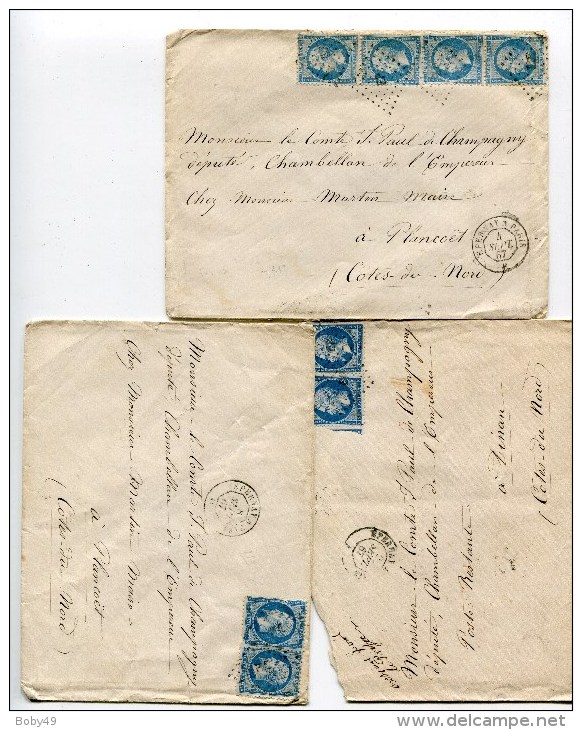 Monsieur le Comte S. Paul de Champagny
député, Chambellan de l'Empereur
Chez Monsieur Martin Main
à Plancoët
(Côtes du Nord)
EPERNAY A PARIS
4
SEPT.
67
Monsieur le Comte S. Paul de Champagny
député Chambellan de l'Empereur
Chez Monsieur Martin Main
à Plancoët
(Côtes du Nord)
EPERNAY
Monsieur le Comte S. Paul de Champagny
député, Chambellan de l'Empereur
Poste Restante
à Dinan
(Côtes du Nord)
EPERNAY
Boby49
delcampe.net